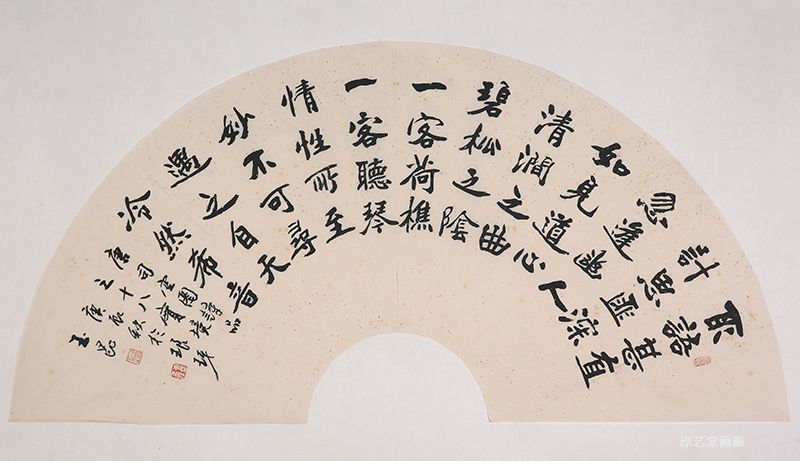 取語甚直
計思匪深
忽逢幽人
如見道心
清澗之曲
碧松之陰
一客荷樵
一客聽琴
情性所至
妙不可尋
遇之自天
冷然希音
唐司空圖詩品
之十八實境
庚辰秋於
玉
艺堂画廊